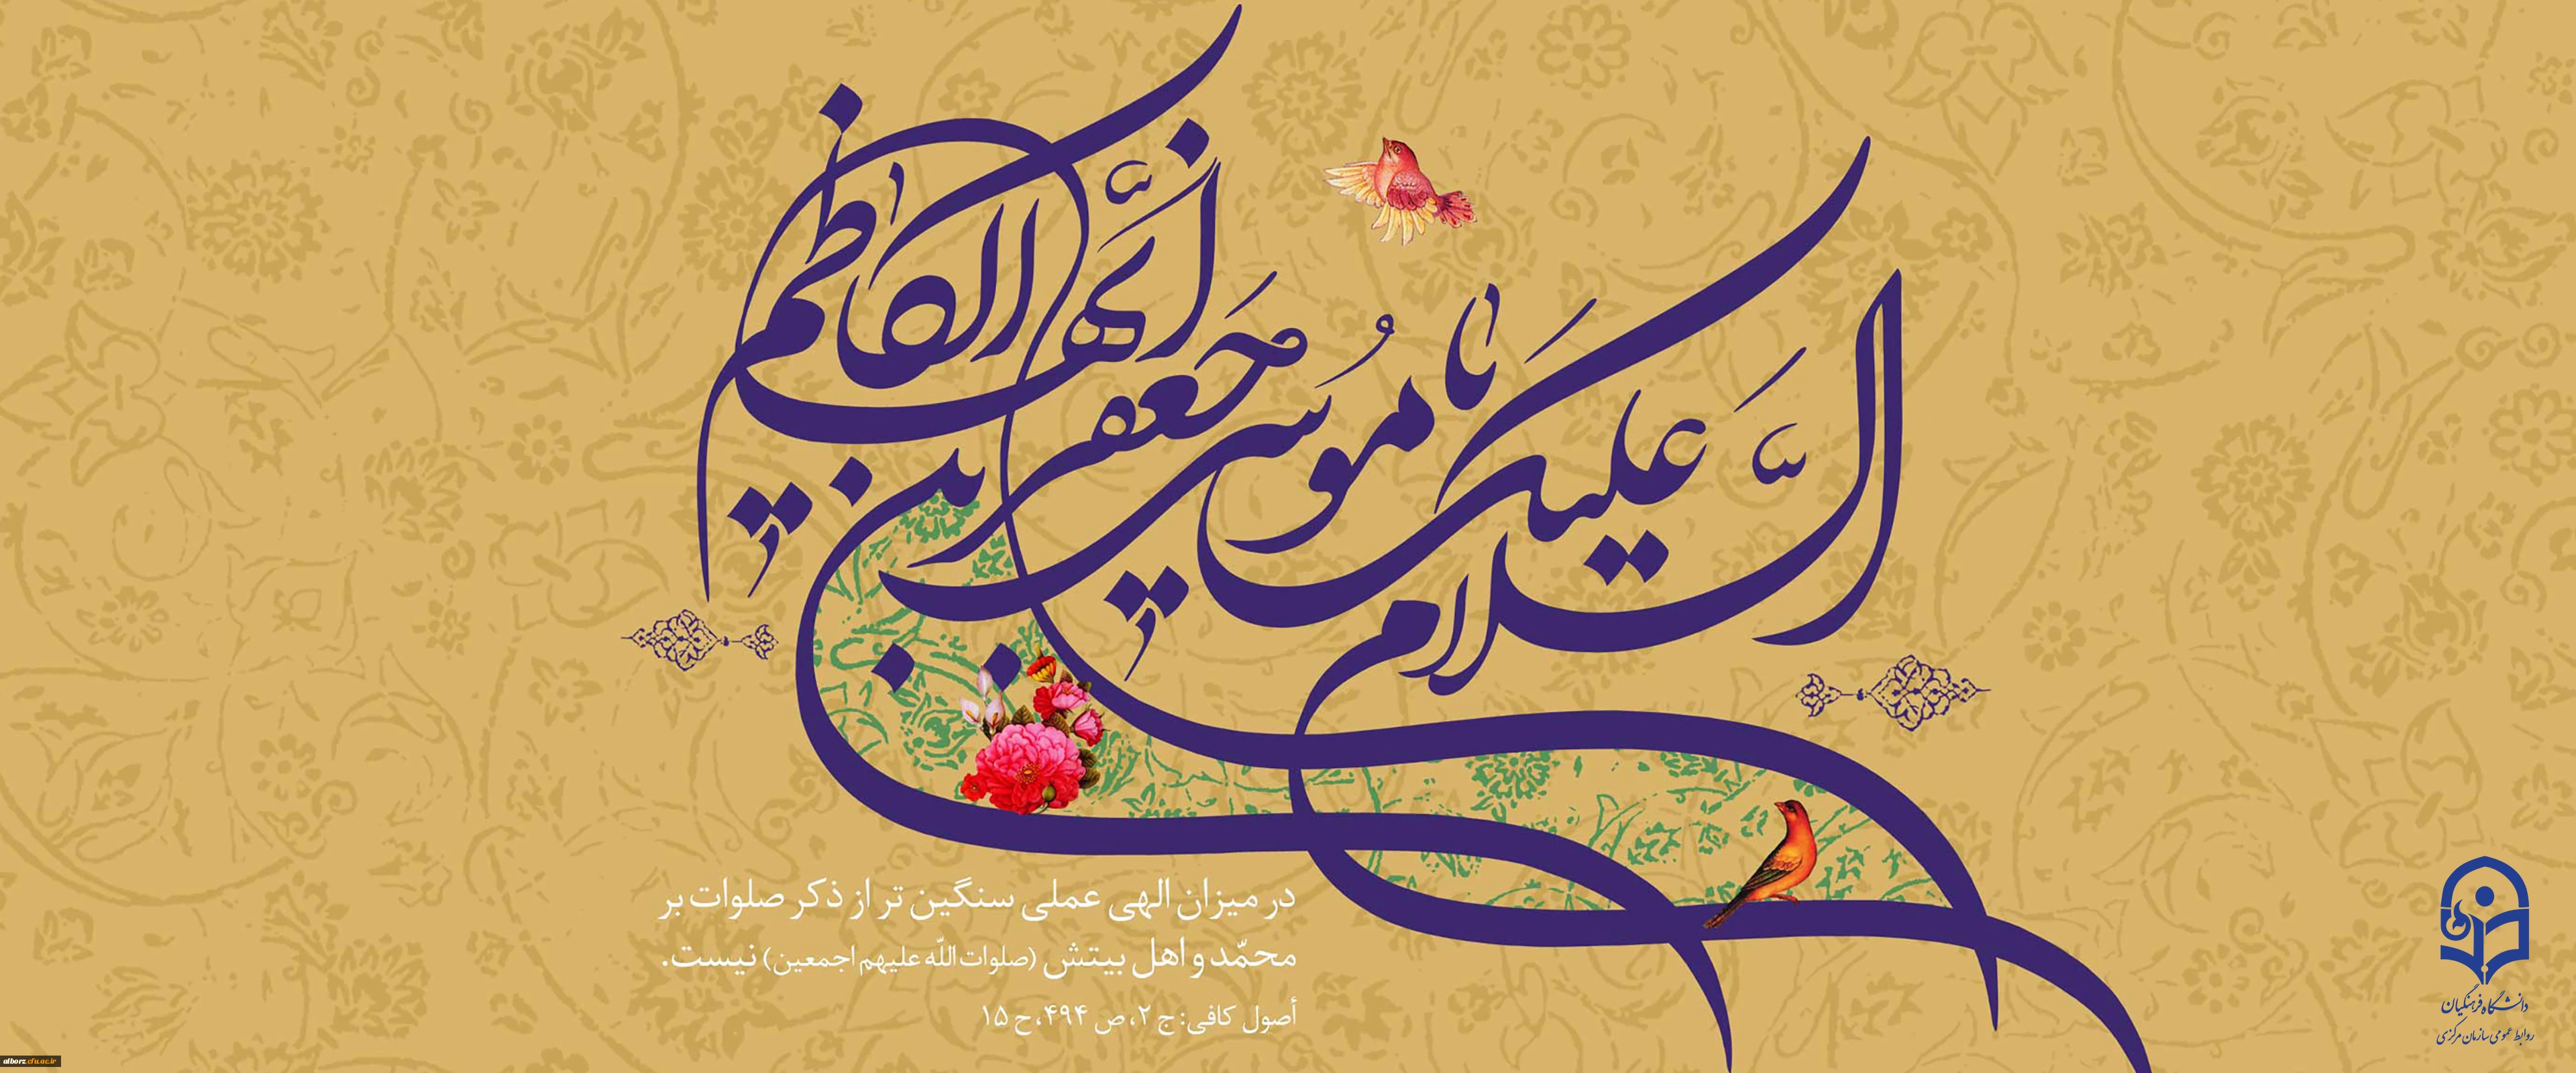 السَّلام عَلَیکَ یا مُوسَی بنَ جَعفَر أَیُّهَا الکاظِم
در میزان الهی عملی سنگین تر از ذکر صلوات بر
محمّد و اهل بیتش (صلوات اللّه علیهم اجمعین) نیست.
أصول کافی: ج ۲، ص ۴۹۴، ح ۱۵
دانشگاه فرهنگیان
روابط عمومی سازمان مرکزی
alborz.cfu.ac.ir